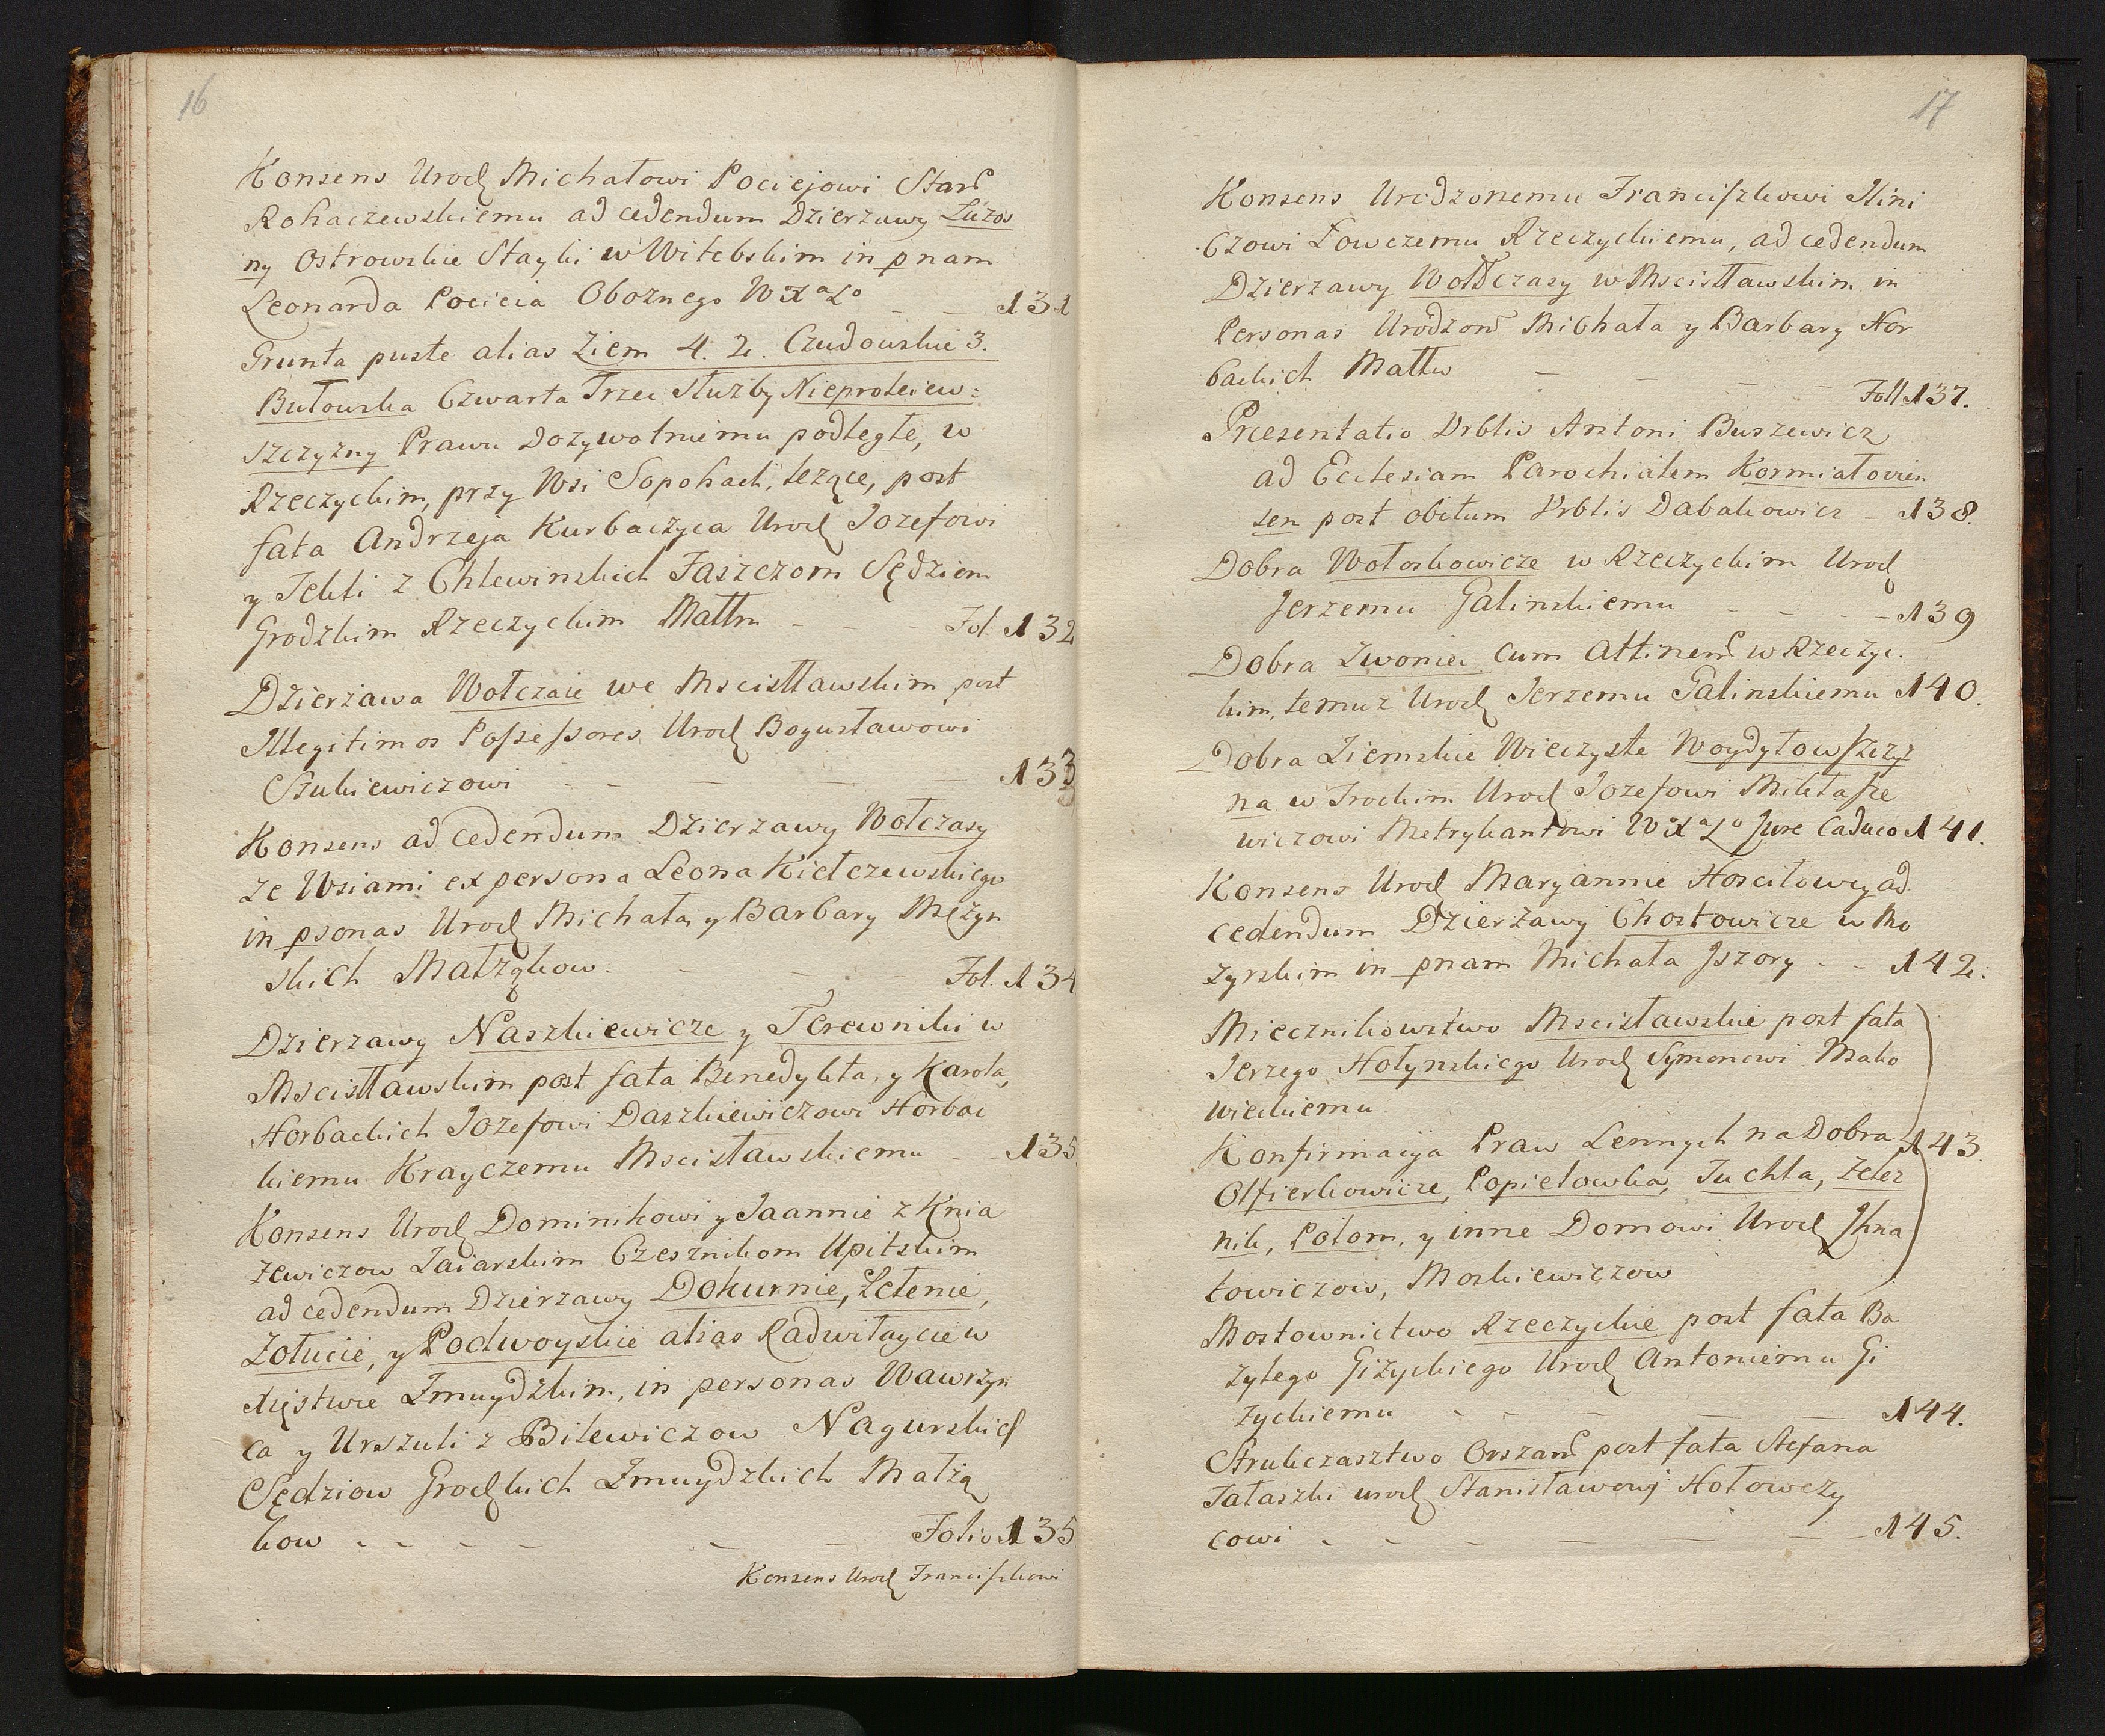 16
Konsens Urodz Michałowi Pociejowi Star
Rohaczewskiemu ad cedendum Dzierzawy Łuzos
ny Ostrowskie Stayki w Witebskim in pnam
Leonarda Pocieia Oboznego WXaLo _ _ 131
Grunta puste alias Ziem 4. 2. Czudowskie 3.
Butowska Czwarta Trzei Służby Nieprokiew:
szczyzny Prawu dozywotniemu podległe, w
Rzeczyckim, przy Wsi Sopohach, leżące, post
fata Andrzeja Kurbaczyca Urodz Jozefowi
y Tekli z Chlewinskich Faszczom Sędziom
Grodzkim Rzeczyckim Małłm _ _ _ Fol. 132
Dzierżawa Wołczaie we Mscisłławskim post
Illegitimos Possessores Urodz Bogusławowi
Szukiewiczowi _ _ _ _ 133
Konsens ad cedendum Dzierzawy Wołczasy
ze Wsiami ex persona Leona Kiełczewskiego
in psonas Urodz Michała y Barbary Mężyn
skich Małżąkow. _ Fol. 134
Dzierzawy Naszkiewicze y Terewniki w
Mscisłławskim post fata Benedykta, y Karola,
Horbackich Jozefowi Daszkiewiczowi Horbac
kiemu Krayczemu Mscisławskiemu _ _ 135
Konsens Urodz Dominikowi y Jaannie z Knia
zewiczow Zaiarskim Czesznikom Upitskim
ad cedendum Dzierzawy Dokurnie, Łetenie,
Zołucie, y Podwoyskie alias Radwiłaycie w
Xięstwie Zmuydzkim, in personas Wawrzyn
ca y Urszuli z Bilewiczow Nagurskich
Sędziow Grodzkich Zmuydzkich Małżą
kow _ _ _ _ _ _ Folio 135
Konsens Urodz Franciszkowi
17
Konsens Urodzonemu Franciszkowi Ilini
czowi Łowczemu Rzeczyckiemu, ad cedendum
Dzierzawy Wołczasy w Mscisłławskim in
Personas Urodzon Michała y Barbary Hor
backich Małłw _ _ _ _ Foll 137.
Præsentatio Vrblis Antoni Buszewicz
ad Ecclesiam Parochialem Kormiałovien
sen post obitum Vrblis Dabakowicz _ 138.
Dobra Wołoskowicze w Rzeczyckim Urodz
Jerzemu Galinskiemu _ _ _ 139
Dobra Zwoniec cum Attinen w Rzeczyc.
kim, temuz Urodz Jerzemu Galinskiemu 140.
Dobra Ziemskie Wieczyste Woydyłowszczyz
na w Trockim Urodz Jozefowi Mikłasze
wiczowi Metrykantowi WXaLo Jure Caduco 141.
Konsens Urodz Maryannie Hosciłowey ad
cedendum Dzierżawy Chostowicze w Mo
zyrskim in pnam Michała Jszory _ _ 142.
Miecznikowstwo Mscisławskie post fata
Jerzego Hołynskiego Urodz Symonowi Mako
wieckiemu
Konfirmacya Praw Lennych na Dobra 143
Olfierkowicze, Popiełowka, Juchta, Zelez
nik, Połom, y inne Domowi Urodz Jhna
towiczow, Moskiewiczow
Mostownictwo Rzeczyckie post fata Ba
zylego Giżyckiego Urodz Antoniemu Gi
zyckiemu _ _ _ _ _ 144.
Strukczasztwo Orszan post fata Stefana
Tałaszki urodz Stanisławowj Hołowczy
cowi _ _ _ _ _ _ 145.